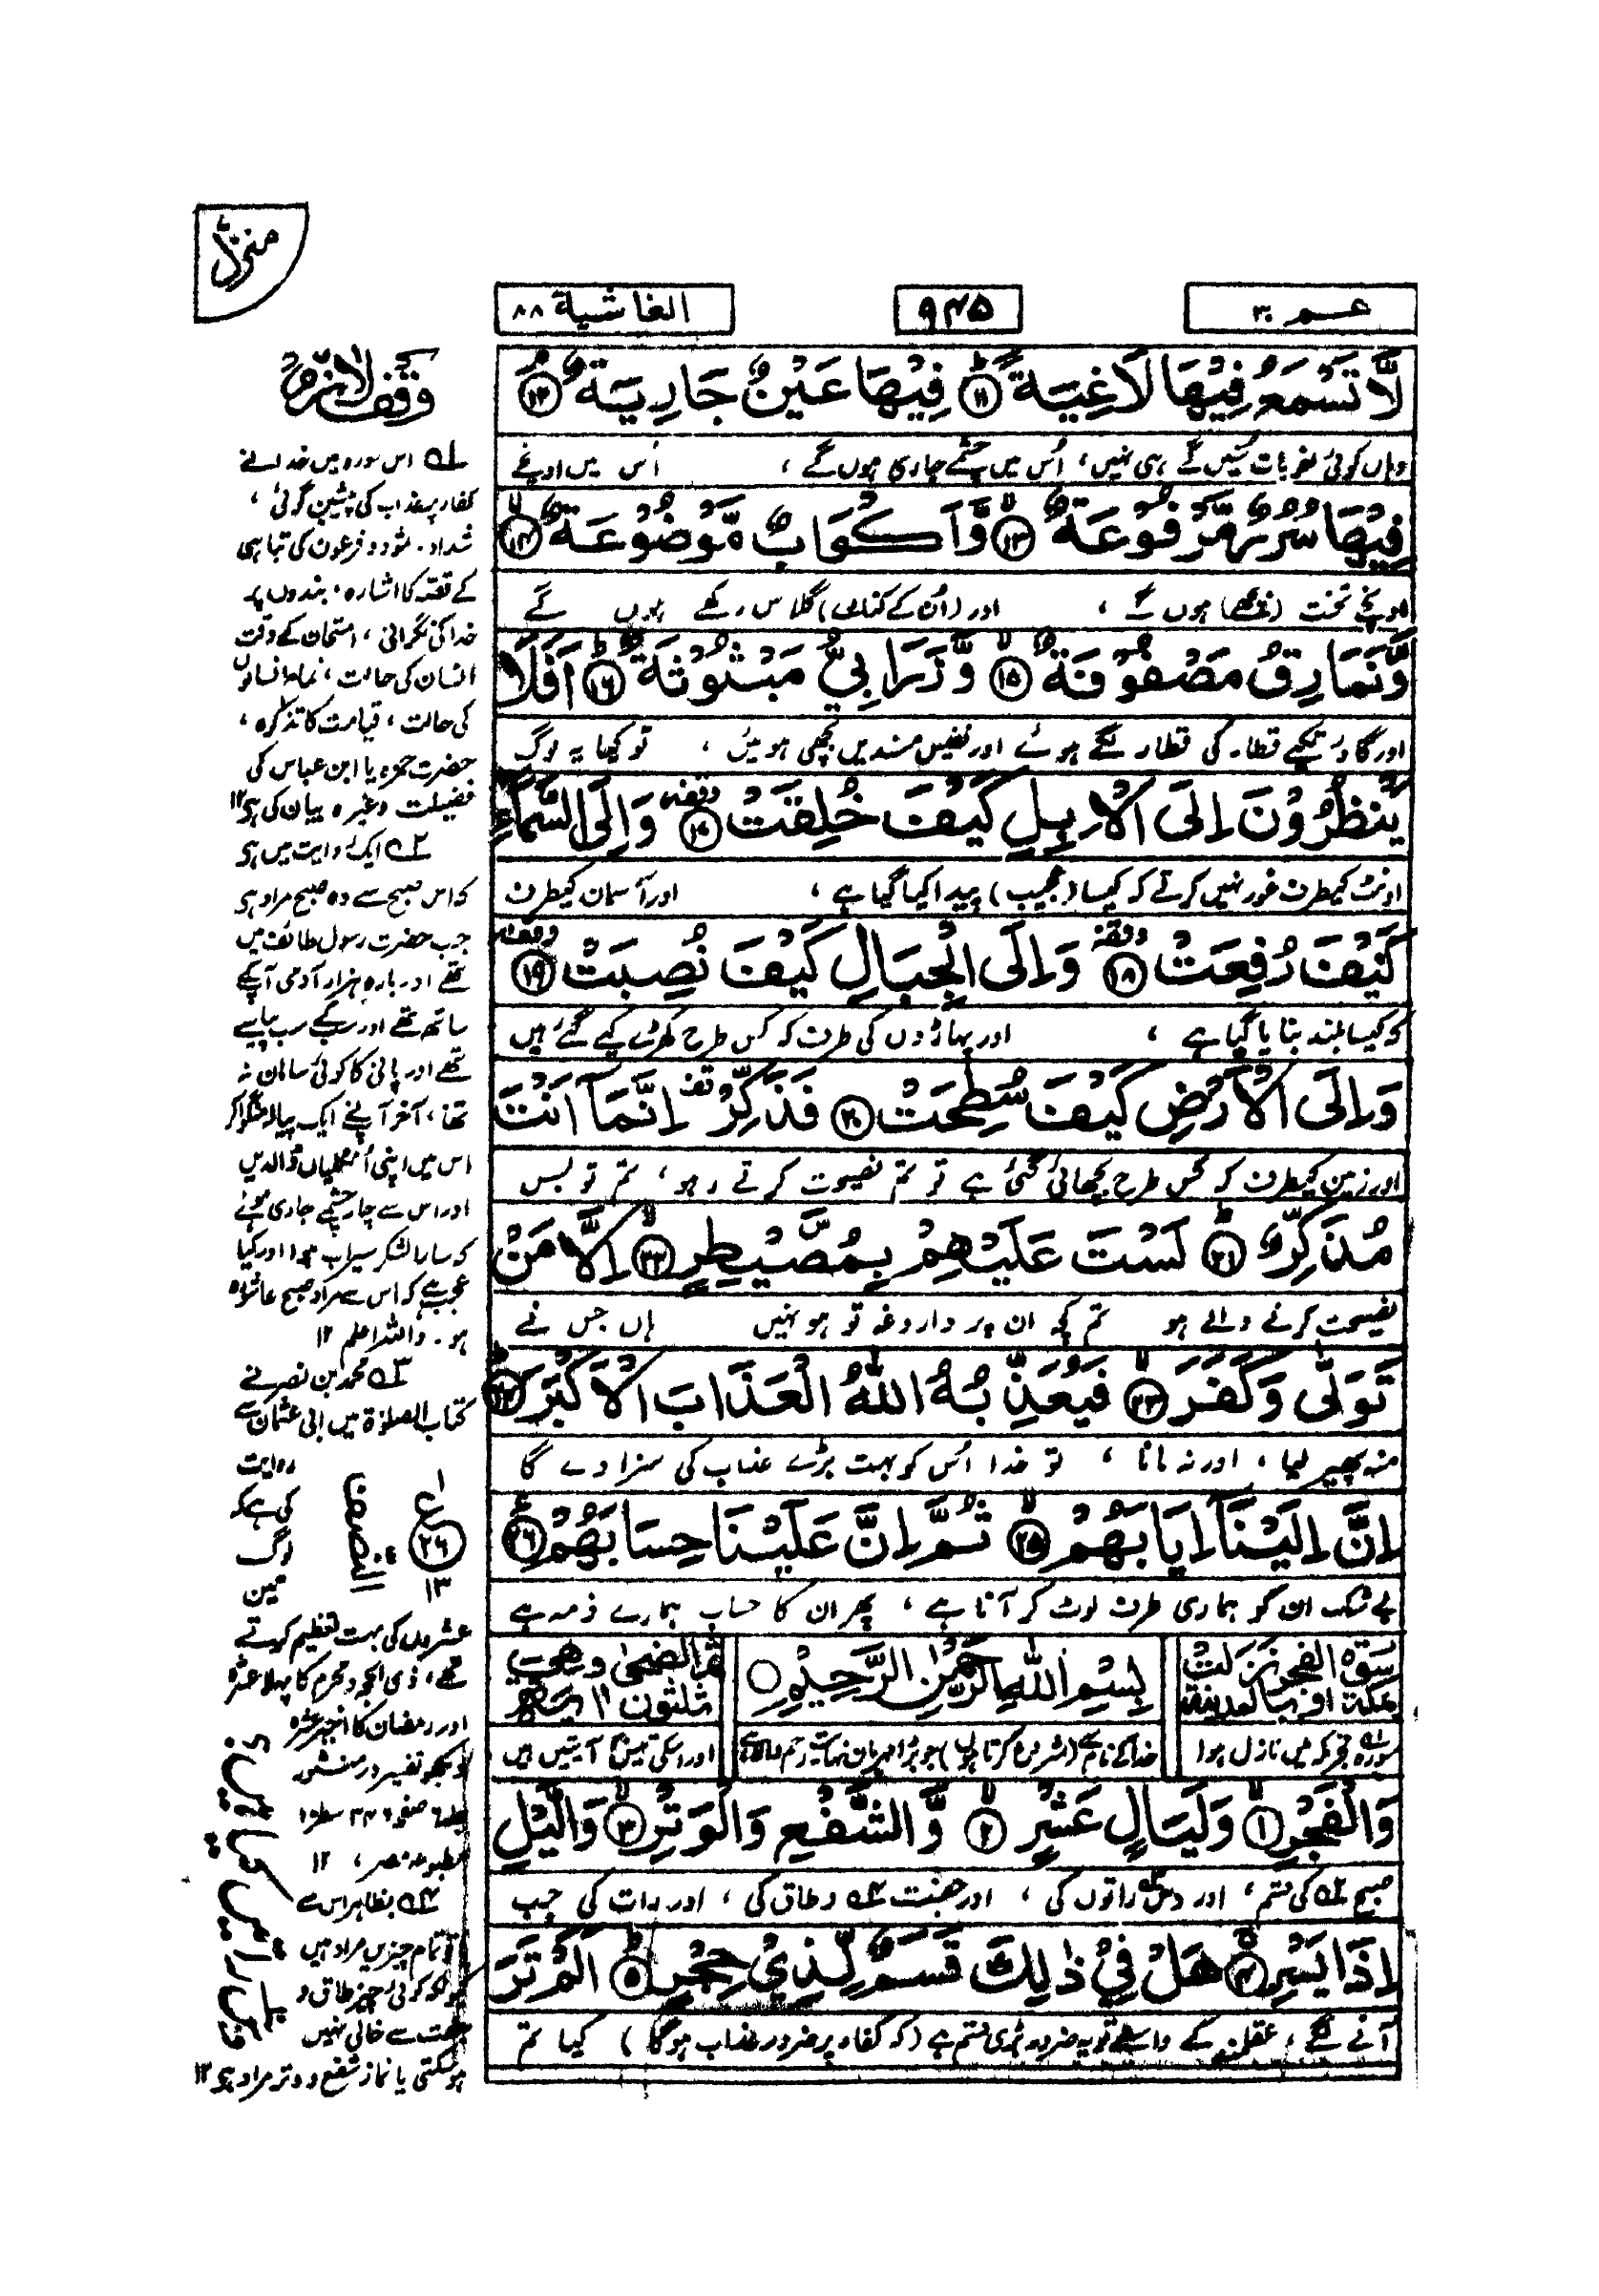 منزل
عــم ۳۰
۹۴۵
الغاشية ۸۸
لَّا تَسْمَعُ فِيْهَا لَاغِيَةً ⑪ فِيْهَا عَيْنٌ جَارِيَةٌ ⑫
وہاں کوئی لغو بات سنیں گے ہی نہیں، اُس میں چشمے جاری ہوں گے، اُس میں اونچے
فِيْهَا سُرُرٌ مَّرْفُوْعَةٌ ⑬ وَّاَكْوَابٌ مَّوْضُوْعَةٌ ⑭
اونچے تخت (بچھے) ہوں گے، اور (اُن کے کنارے) گلاس رکھے ہوں گے
وَّنَمَارِقُ مَصْفُوْفَةٌ ⑮ وَّزَرَابِيُّ مَبْثُوْثَةٌ ⑯ اَفَلَا
اور گاؤ تکیے قطار کی قطار لگے ہوئے اور نفیس مسندیں بچھی ہوئیں، تو کیا یہ لوگ
يَنْظُرُوْنَ اِلَى الْاِبِلِ كَيْفَ خُلِقَتْ ⑰ وقفه وَاِلَى السَّمَآءِ
اونٹ کیطرف غور نہیں کرتے کہ کیسا (عجیب) پیدا کیا گیا ہے، اور آسمان کیطرف
كَيْفَ رُفِعَتْ ⑱ وقفه وَاِلَى الْجِبَالِ كَيْفَ نُصِبَتْ ⑲ وقفه
کہ کیسا بلند بنایا گیا ہے، اور پہاڑوں کی طرف کہ کس طرح کھڑے کیے گئے ہیں
وَاِلَى الْاَرْضِ كَيْفَ سُطِحَتْ ⑳ وقف فَذَكِّرْ اِنَّمَآ اَنْتَ
اور زمین کیطرف کہ کس طرح بچھائی گئی ہے تو تم نصیحت کرتے رہو، تم تو بس
مُذَكِّرٌ ㉑ لَسْتَ عَلَيْهِمْ بِمُصَۜيْطِرٍ ㉒ اِلَّا مَنْ
نصیحت کرنے والے ہو تم کچھ ان پر داروغہ تو ہو نہیں ہاں جس نے
تَوَلّٰى وَكَفَرَ ㉓ فَيُعَذِّبُهُ اللّٰهُ الْعَذَابَ الْاَكْبَرَ ㉔
منہ پھیر لیا، اور نہ مانا، تو خدا اُس کو بہت بڑے عذاب کی سزا دے گا
اِنَّ اِلَيْنَآ اِيَابَهُمْ ㉕ ثُمَّ اِنَّ عَلَيْنَا حِسَابَهُمْ ㉖
بے شک ان کو ہماری طرف لوٹ کر آنا ہے، پھر ان کا حساب ہمارے ذمہ ہے
سورة الفجر نزلت
بمكة او بالمدينة
بِسْمِ اللّٰهِ الرَّحْمٰنِ الرَّحِيْمِ
الضحى وهى
ثلثون اية
سورہ فجر مکہ میں نازل ہوا
خدا کے نام سے (شروع کرتا ہوں) جو بڑا مہربان نہایت رحم والا ہے
اور اسکی تیس آیتیں ہیں
وَالْفَجْرِ ① وَلَيَالٍ عَشْرٍ ② وَّالشَّفْعِ وَالْوَتْرِ ③ وَالَّيْلِ
صبح ۲؎ کی قسم، اور دس ۳؎ راتوں کی، اور جفت ۴؎ و طاق کی، اور رات کی جب
اِذَا يَسْرِ ④ هَلْ فِيْ ذٰلِكَ قَسَمٌ لِّذِيْ حِجْرٍ ⑤ اَلَمْ تَرَ
آنے لگے، عقلمند کے واسطے تو یہ ضرور بڑی قسم ہے (کہ کفار پر ضرور عذاب ہوگا) کیا تم
وقف لازم
۱؎ اس سورہ میں خدا نے
کفار پر عذاب کی پیشین گوئی،
شداد۔ ثمود و فرعون کی تباہی
کے قصّہ کا اشارہ۔ بندوں پر
خدا کی نگرانی، امتحان کے وقت
انسان کی حالت، تمام انسانوں
کی حالت، قیامت کا تذکرہ،
حضرت حمزہ یا ابن عباس کی
فضیلت وغیرہ بیان کی ہے ۱۲
۲؎ ایک روایت میں ہے
کہ اس صبح سے وہ صبح مراد ہے
جب حضرت رسول طائف میں
تھے اور بارہ ہزار آدمی آپ کے
ساتھ تھے اور سب کے سب پیاسے
تھے اور پانی کا کوئی سامان نہ
تھا، آخر آپ نے ایک پیالا منگوا کر
اس میں اپنی اُنگلیاں ڈالدیں
اور اس سے چار چشمے جاری ہوئے
کہ سارا لشکر سیراب ہوا اور کیا
عجب ہے کہ اس سے مراد صبح عاشورہ
ہو۔ واللہ اعلم ۱۲
۳؎ محمد بن نصر نے
کتاب الصلوٰۃ میں ابی عثمان سے
روایت
کی ہے کہ
لوگ
تین
ع
۱
۲۶
۱۳
عشروں کی بہت تعظیم کرتے
تھے، ذی الحجہ و محرم کا پہلا عشرہ
اور رمضان کا اخیر عشرہ
دیکھو تفسیر درمنثور
جلد ۶ صفحہ ۳۴۶ سطر
مطبوعہ مصر، ۱۲
۴؎ بظاہر اس سے
تمام چیزیں مراد ہیں
کیونکہ کوئی چیز طاق و
جفت سے خالی نہیں
ہوسکتی یا نماز شفع و وتر مراد ہے ۱۲